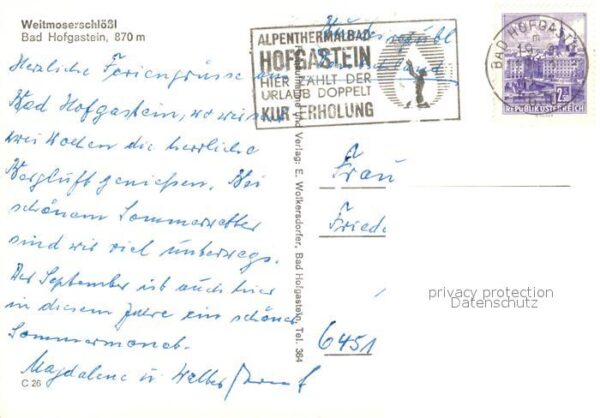 Weitmoserschlößl
Bad Hofgastein, 870 m
Herzliche Feriengrüsse aus
Bad Hofgastein, wo wir seit
zwei Wochen die herrliche
Bergluft geniessen. Bei
schönem Sommerwetter
sind wir viel unterwegs.
Der September ist auch hier
in diesem Jahre ein schöner
Sommermonat.
Magdalene u. Walter
C 26
ALPENTHERMALBAD
HOFGASTEIN
HIER ZÄHLT DER
URLAUB DOPPELT
KUR ERHOLUNG
BAD HOFGASTEIN
REPUBLIK ÖSTERREICH
und Verlag: E. Wolkersdorfer, Bad Hofgastein, Tel. 364
Frau
Friede
6451
privacy protection
Datenschutz